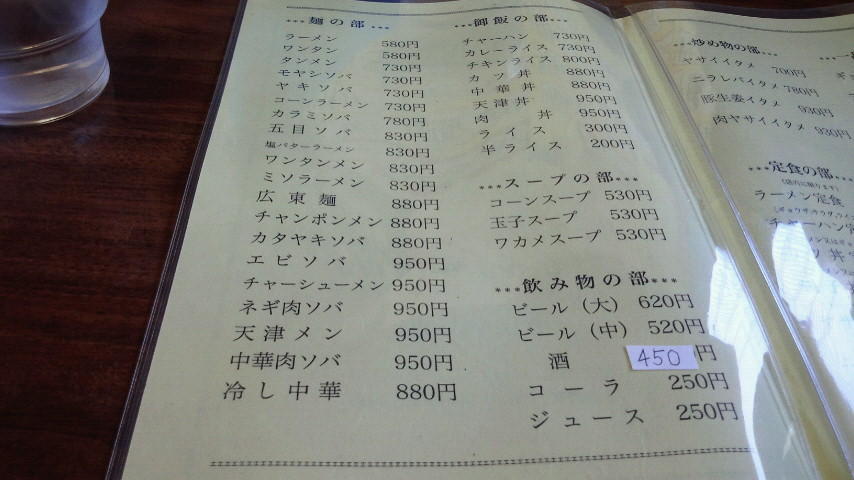 ***麺の部***
ラーメン 580円
ワンタン 580円
タンメン 730円
モヤシソバ 730円
ヤキソバ 730円
コーンラーメン 730円
カラミソバ 780円
五目ソバ 830円
塩バターラーメン 830円
ワンタンメン 830円
ミソラーメン 830円
広東麺 880円
チャンポンメン 880円
カタヤキソバ 880円
エビソバ 950円
チャーシューメン 950円
ネギ肉ソバ 950円
天津メン 950円
中華肉ソバ 950円
冷し中華 880円
***御飯の部***
チャーハン 730円
カレーライス 730円
チキンライス 800円
カツ丼 880円
中華丼 880円
天津丼 950円
肉丼 950円
ライス 300円
半ライス 200円
***スープの部***
コーンスープ 530円
玉子スープ 530円
ワカメスープ 530円
***飲み物の部***
ビール(大) 620円
ビール(中) 520円
酒 450円
コーラ 250円
ジュース 250円
***炒め物の部***
ヤサイイタメ 700円
ニラレバイタメ 780円
豚生姜イタメ 930円
肉ヤサイイタメ 930円
***定食の部
ラーメン定食